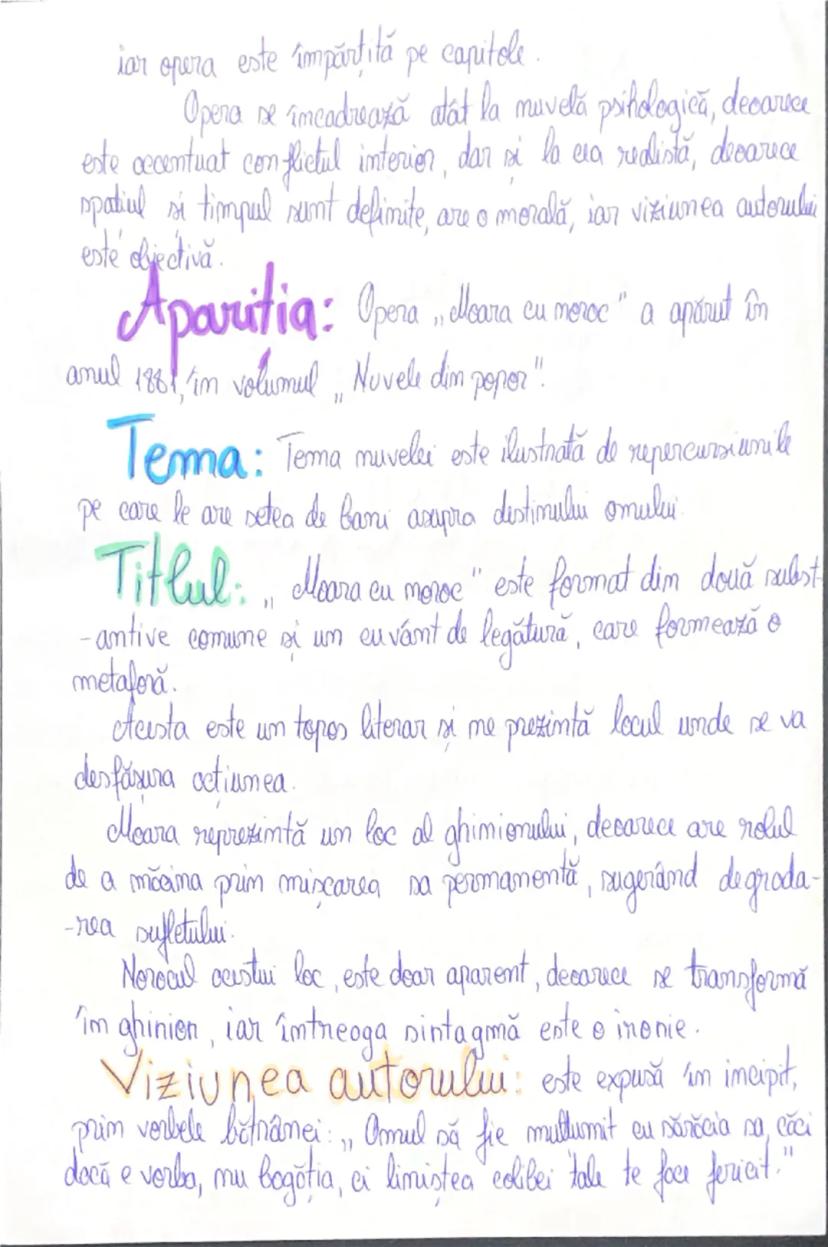 iar opera este împărțită pe capitole.
Opera se încadrează atât la nuvelă psihologică, deoarece
este accentuat conflictul interior, dar și la cea realistă, deoarece
spațiul și timpul sunt definite, are o morală, iar viziunea autorului
este obiectivă.
Apariția: Opera „Moara cu noroc" a apărut în
anul 1881, în volumul „Nuvele din popor".
Tema: Tema nuvelei este ilustrată de repercursiunile
pe care le are setea de bani asupra destinului omului.
Titlul: „Moara cu noroc" este format din două subst-
-antive comune și un cuvânt de legătură, care formează o
metaforă.
Acesta este un topos literar și ne prezintă locul unde se va
desfășura acțiunea.
Moara reprezintă un loc al ghinionului, deoarece are rolul
de a măcina prin mișcarea sa permanentă, sugerând degrada-
-rea sufletului.
Norocul acestui loc, este doar aparent, deoarece se transformă
în ghinion, iar întreaga sintagmă este o ironie.
Viziunea autorului: este expusă în incipit,
prin vorbele bătrânei: „Omul să fie mulțumit cu sărăcia sa, căci
dacă e vorba, nu bogăția, ci liniștea colibei tale te face fericit."